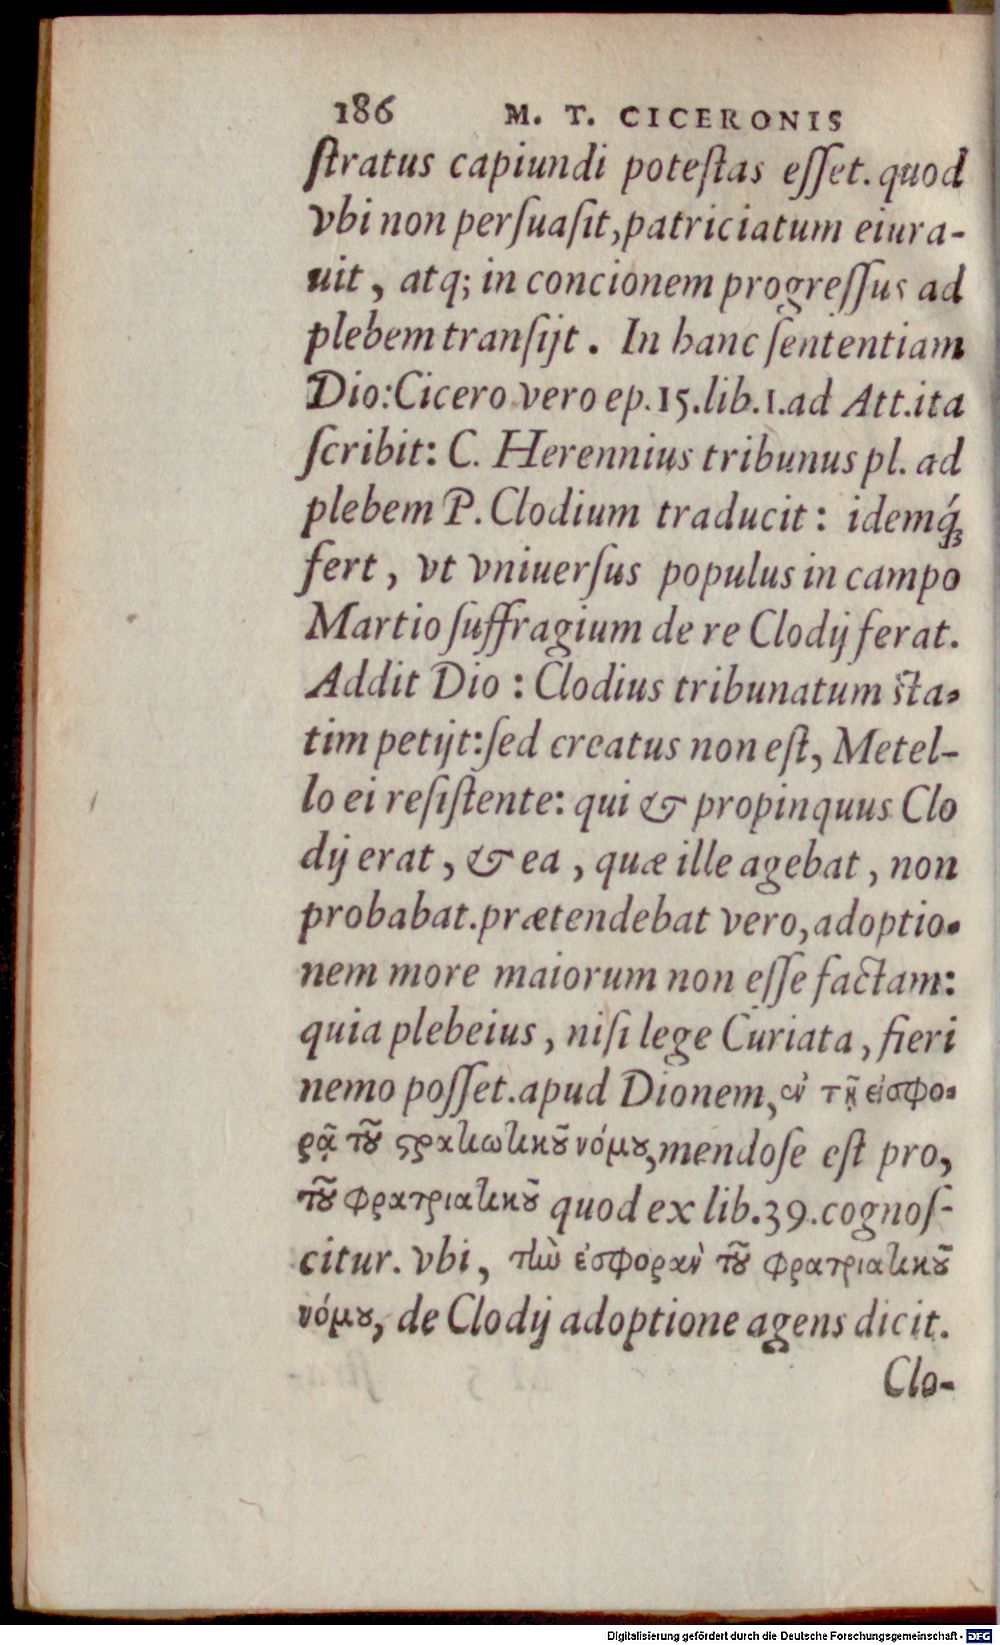 186 M. T. CICERONIS
ſtratus capiundi poteſtas eſſet. quod
vbi non perſuaſit, patriciatum eiura-
uit, atq; in concionem progreſſus ad
plebem tranſijt. In hanc ſententiam
Dio: Cicero vero ep. 15. lib. 1. ad Att. ita
ſcribit: C. Herennius tribunus pl. ad
plebem P. Clodium traducit: idemq́ꝫ
fert, vt vniuerſus populus in campo
Martio ſuffragium de re Clodij ferat.
Addit Dio: Clodius tribunatum ſta-
tim petijt: ſed creatus non eſt, Metel-
lo ei reſiſtente: qui & propinquus Clo
dij erat, & ea, quæ ille agebat, non
probabat. prætendebat vero, adoptio-
nem more maiorum non eſſe factam:
quia plebeius, niſi lege Curiata, fieri
nemo poſſet. apud Dionem, ἐν τῇ εἰσφο-
ρᾷ τοῦ στρατιωτικοῦ νόμου, mendoſe eſt pro,
τοῦ φρατριατικοῦ quod ex lib. 39. cognoſ-
citur. vbi, τὴν ἐσφορὰν τοῦ φρατριατικοῦ
νόμου, de Clodij adoptione agens dicit.
Clo-
Digitalisierung gefördert durch die Deutsche Forschungsgemeinschaft - DFG